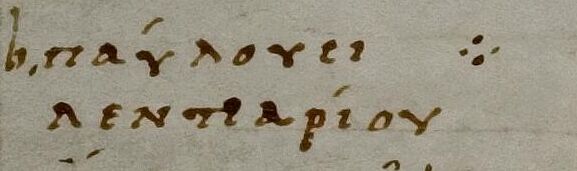 b, παύλου σι ⁘
λεντιαρίου